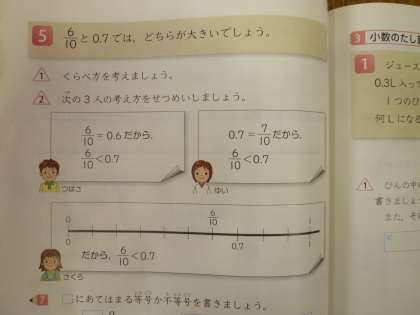 5 6/10と0.7では、どちらが大きいでしょう。
1 くらべ方を考えましょう。
2 次の3人の考え方をせつめいしましょう。
6/10=0.6だから、
6/10<0.7
つばさ
0.7=7/10だから、
6/10<0.7
ゆい
0 6/10 1
0 0.7 1
だから、6/10<0.7
さくら
7 □にあてはまる等号か不等号を書きましょう。
3 小数のたし
1 ジュース
0.3L入っ
1つのび
何Lになる
1 びんの中
書きましょ
また、その